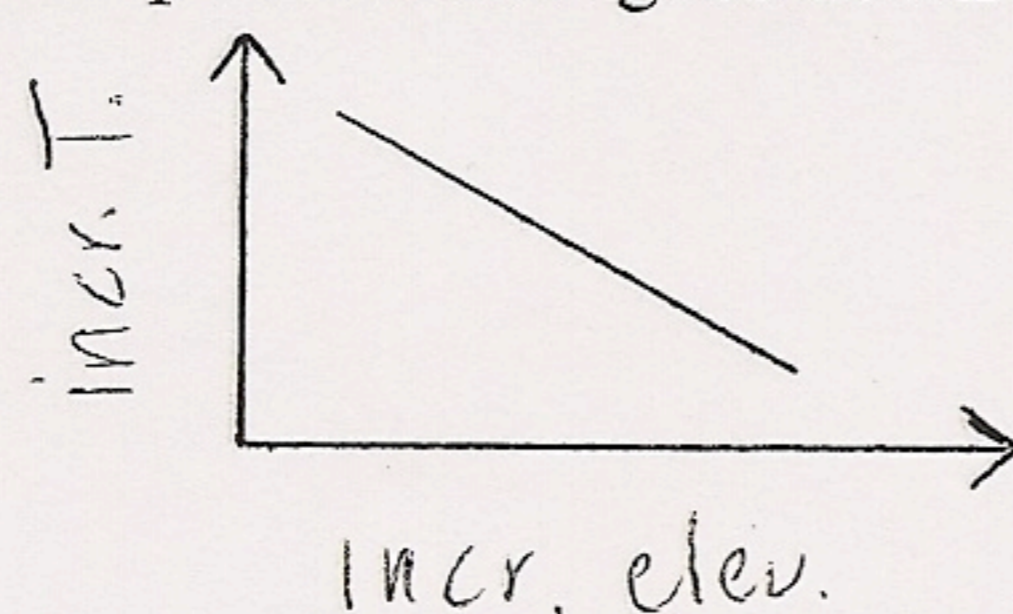 incr. T.
Incr. elev.